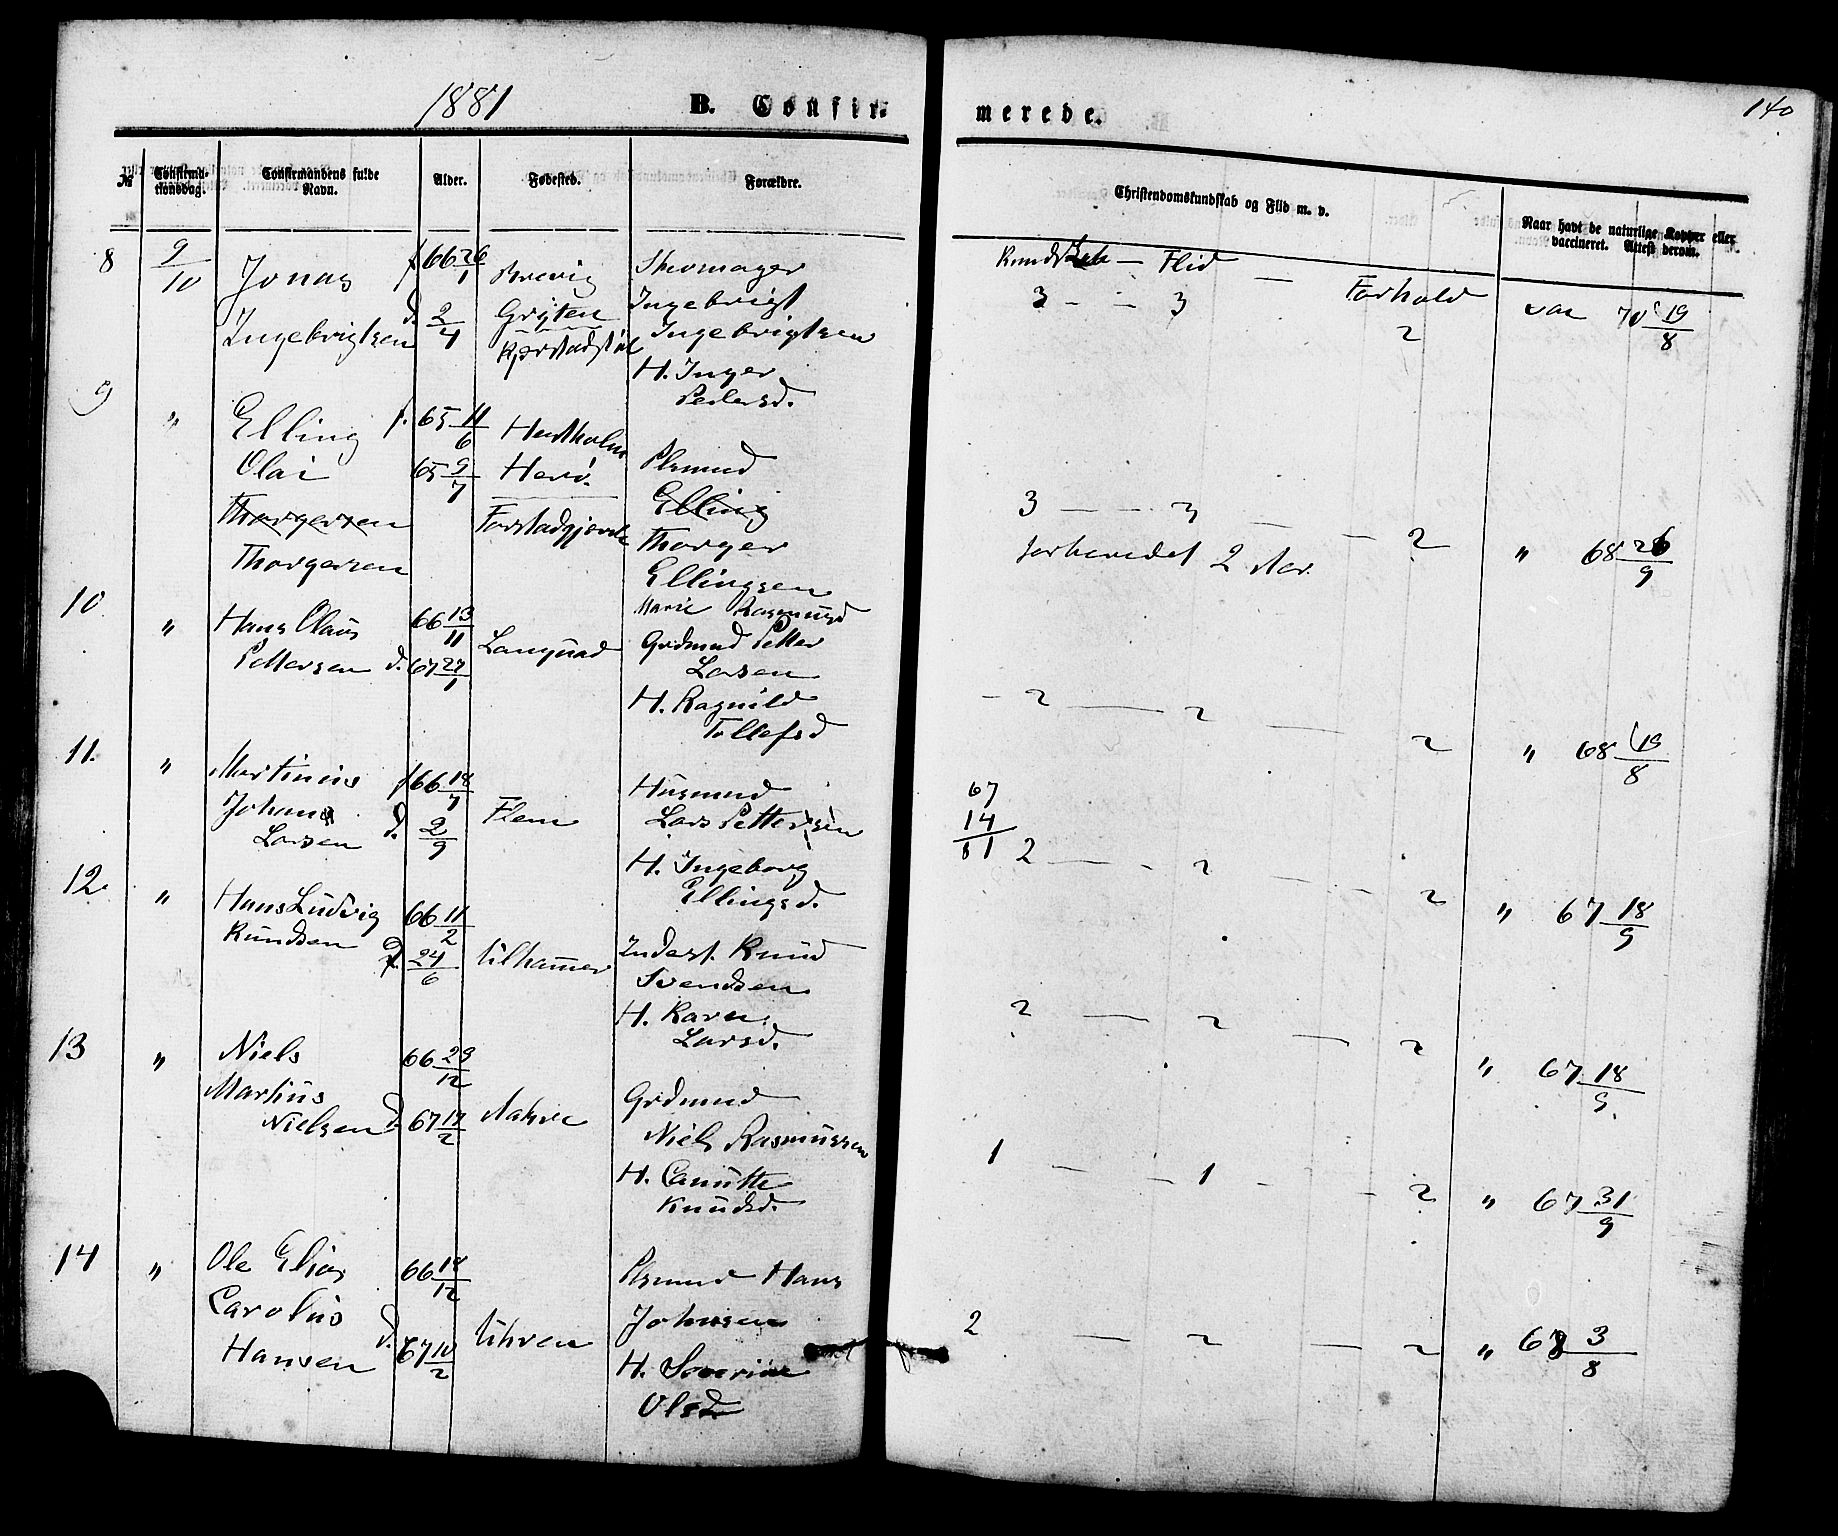 1881 B. Confir-
merede. 140
№ Confirma-
tionsdag. Confirmandens fulde
Navn. Alder. Fødested. Forældre.
Christendomskundskab og Flid m. v. Naar havt de naturlige Kopper eller
vaccineret. Attest derom.
8 9/10 Jonas f 66 26/1 Brevig
Ingebrigtsen d. 2/4 Gryten
Ingebrigt
Ingebrigtsen
H. Inger
Pedersd.
Kundskab — Flid — Forhold
3 - - 3 2 vac 70 19/8
9 " Elling f. 65 11/6
Olai 65 9/7 Herö
Thorgersen
Thorgersen
Elling
Thorger
Ellingsen
Marie Rasmusd
3 — - 3 — - 2 " 68 26/9
forberedet 2 Aar.
10 " Hans Olaus 66 13/11
Pettersen d. 67 27/1
Grdmand Petter
Larsen
H. Ragnild
Tollefsd
- 2 — 2 — 2 " 68 19/8
11. " Martinus f 66 18/7 Flem
Johan
Larsen d. 2/9
Husmand
Lars Pettersen
H. Ingeborg
Ellingsd.
67
14
81 2 — - 2 — - 2 " 67 18/9
12. " Hans Ludvig 66 11/2
Knudsen d. 24/6 Ulhammer
Inderst. Knud
Svendsen
H. Karn
Larsd.
2 — 2 — 2 " 67 18/9.
13 " Niels 66 29/12
Martius
Nielsen d. 67 17/2
Grdmand
Niels Rasmussen
H. Canutte
Knudsd.
1 — - 1 - - 2 " 67 31/9
14 " Ole Elias 66 18/12
Carolus
Hansen d. 67 10/2 Uhren
Plsmand Hans
Johnsen
H. Severine
Olsd
2 — 2 — 2 " 3/8